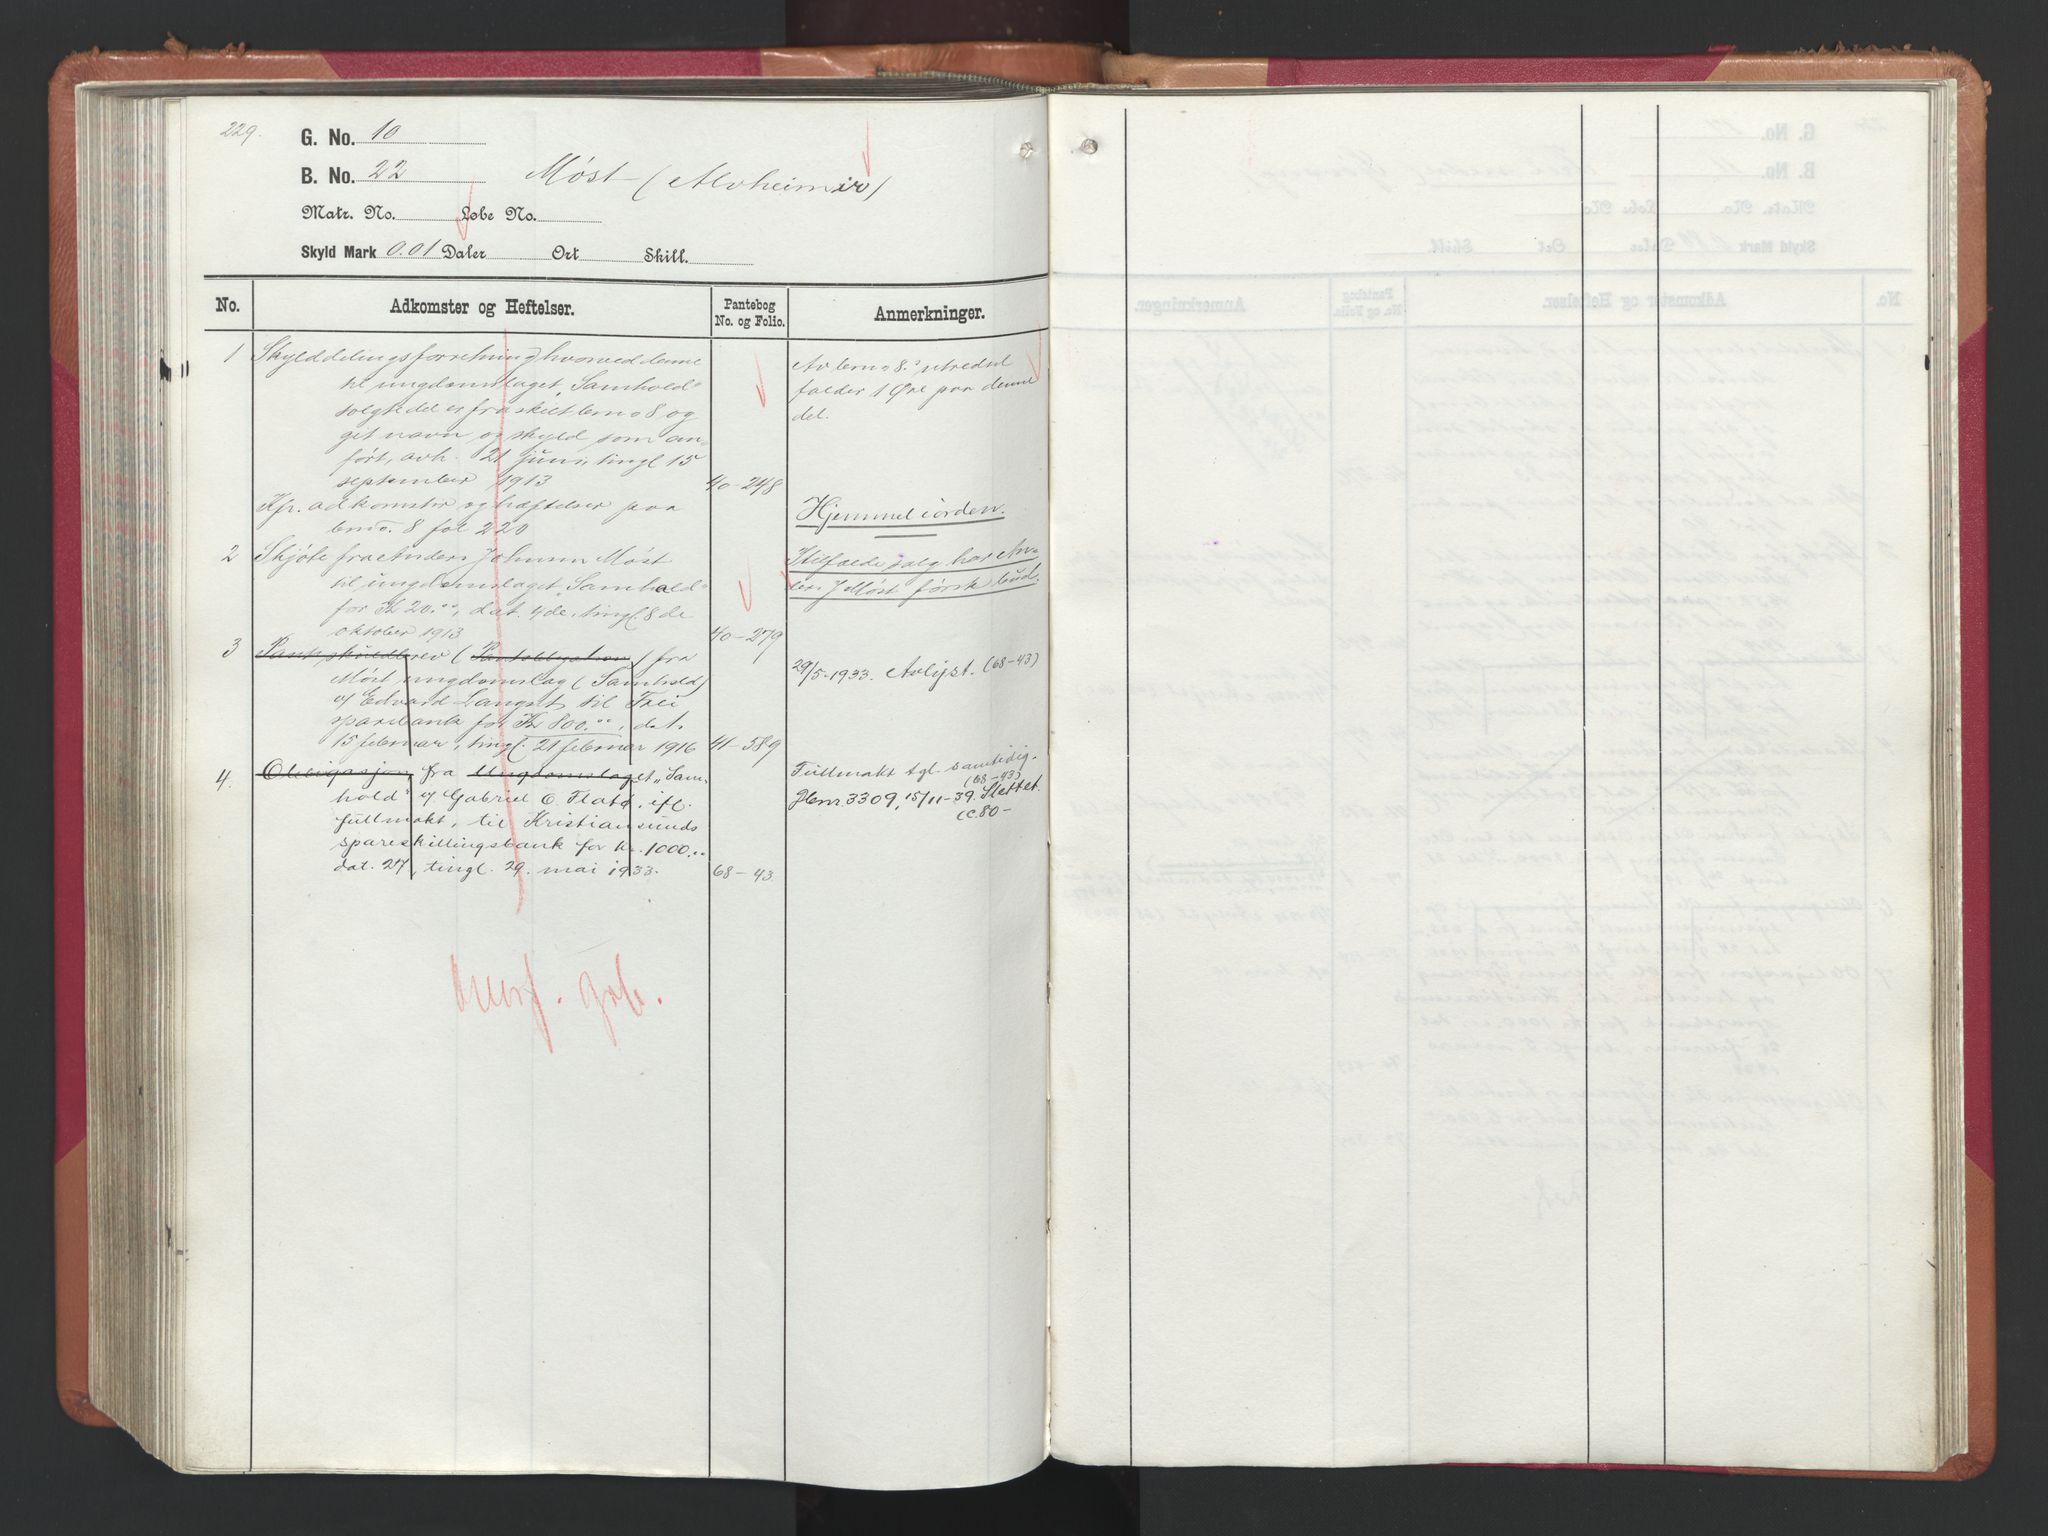 229.
G. No. 10
B. No. 22 Møst (Alvheim
Matr. No. Løbe No.
Skyld Mark 0.01 Daler Ort Skill.
No. Adkomster og Heftelser. Pantebog No. og Folio. Anmerkninger.
1 Skylddelingsforretning hvorved denne
til ungdomslaget "Samhold"
solgte del er fraskilt bno 8 og
git navn og skyld som an-
ført, avh. 21 juni, tingl 15
september 1913 40-248
Av bno 8's utredsel
falder 1 Øre paa denne
del.
Kfr. adkomster og hæftelser paa
bno. 8 fol 220
Hjemmel iorden.
2 Skjøte fra Anders Johnsen Møst
til ungdomslaget "Samhold"
for Kr 20.00, dat. 4de, tingl. 8 de
oktober 1913 40-279
I tilfælde salg har An-
ders J Møst første bud.
3 Panteskuldbrev (Pantobligation) fra
Møst ungdomslag (Samhold)
v/ Edvard Langset til Frei
sparebank for Kr 800.00, dat.
15 februar, tingl. 21 februar 1916 41-589
29/5-1933. Avlyst. (68-43)
4. Obligasjon fra Ungdomslaget "Sam-
hold" v/ Gabriel O. Flatø, ifl.
fullmakt, til Kristiansunds
spareskillingsbank for kr. 1000.00
dat. 27, tingl. 29. mai 1933. 68-43
Fullmakt tgl. samtidig.
(68-43)
Jnr. 3309, 15/11-39. Slettet.
(C.80-